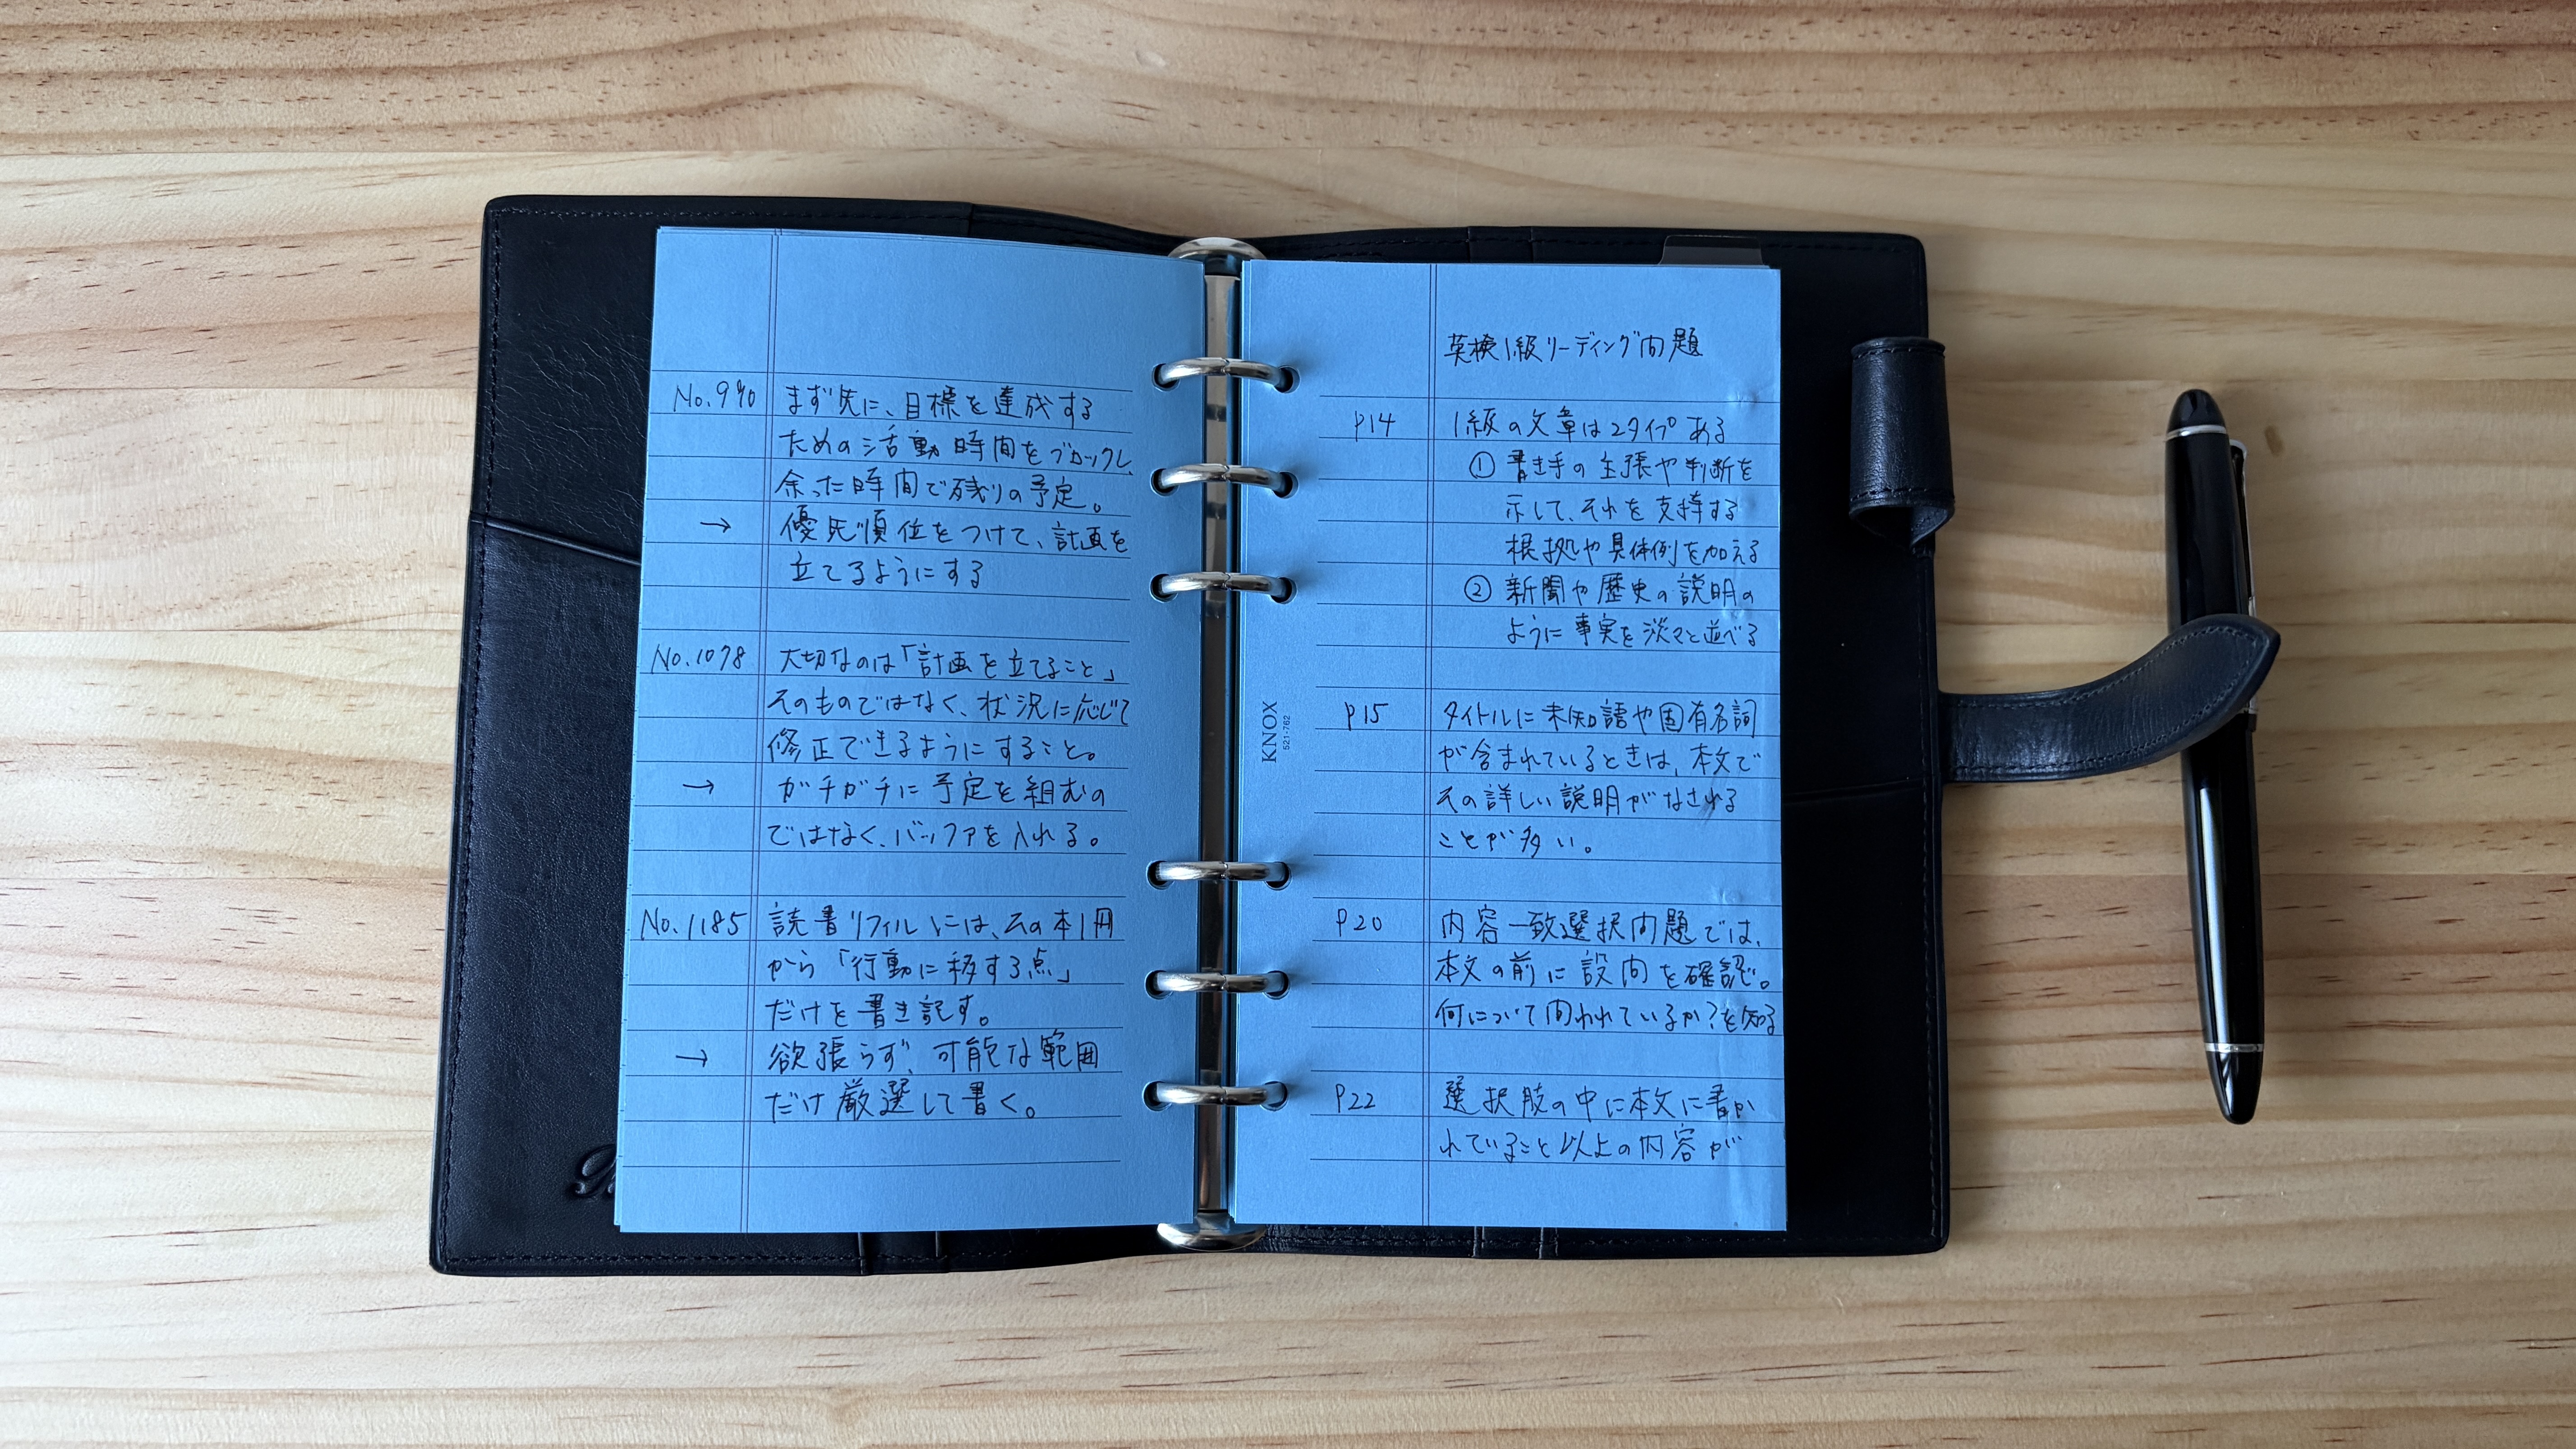 No.990 まず先に、目標を達成する
ための活動時間をブロックし、
余った時間で残りの予定。
→ 優先順位をつけて、計画を
立てるようにする
No.1078 大切なのは「計画を立てること」
そのものではなく、状況に応じて
修正できるようにすること。
→ ガチガチに予定を組むの
ではなく、バッファを入れる。
No.1185 読書リフィルには、その本1冊
から「行動に移する点」
だけを書き記す。
→ 欲張らず、可能な範囲
だけ厳選して書く。
KNOX
521-762
英検1級リーディング問題
P14 1級の文章は2タイプある
① 書き手の主張や判断を
示して、それを支持する
根拠や具体例を加える
② 新聞や歴史の説明の
ように事実を淡々と並べる
P15 タイトルに未知語や固有名詞
が含まれているときは、本文で
その詳しい説明がなされる
ことが多い。
P20 内容一致選択問題では、
本文の前に設問を確認。
何について問われているか?を知る
P22 選択肢の中に本文に書か
れていること以上の内容が